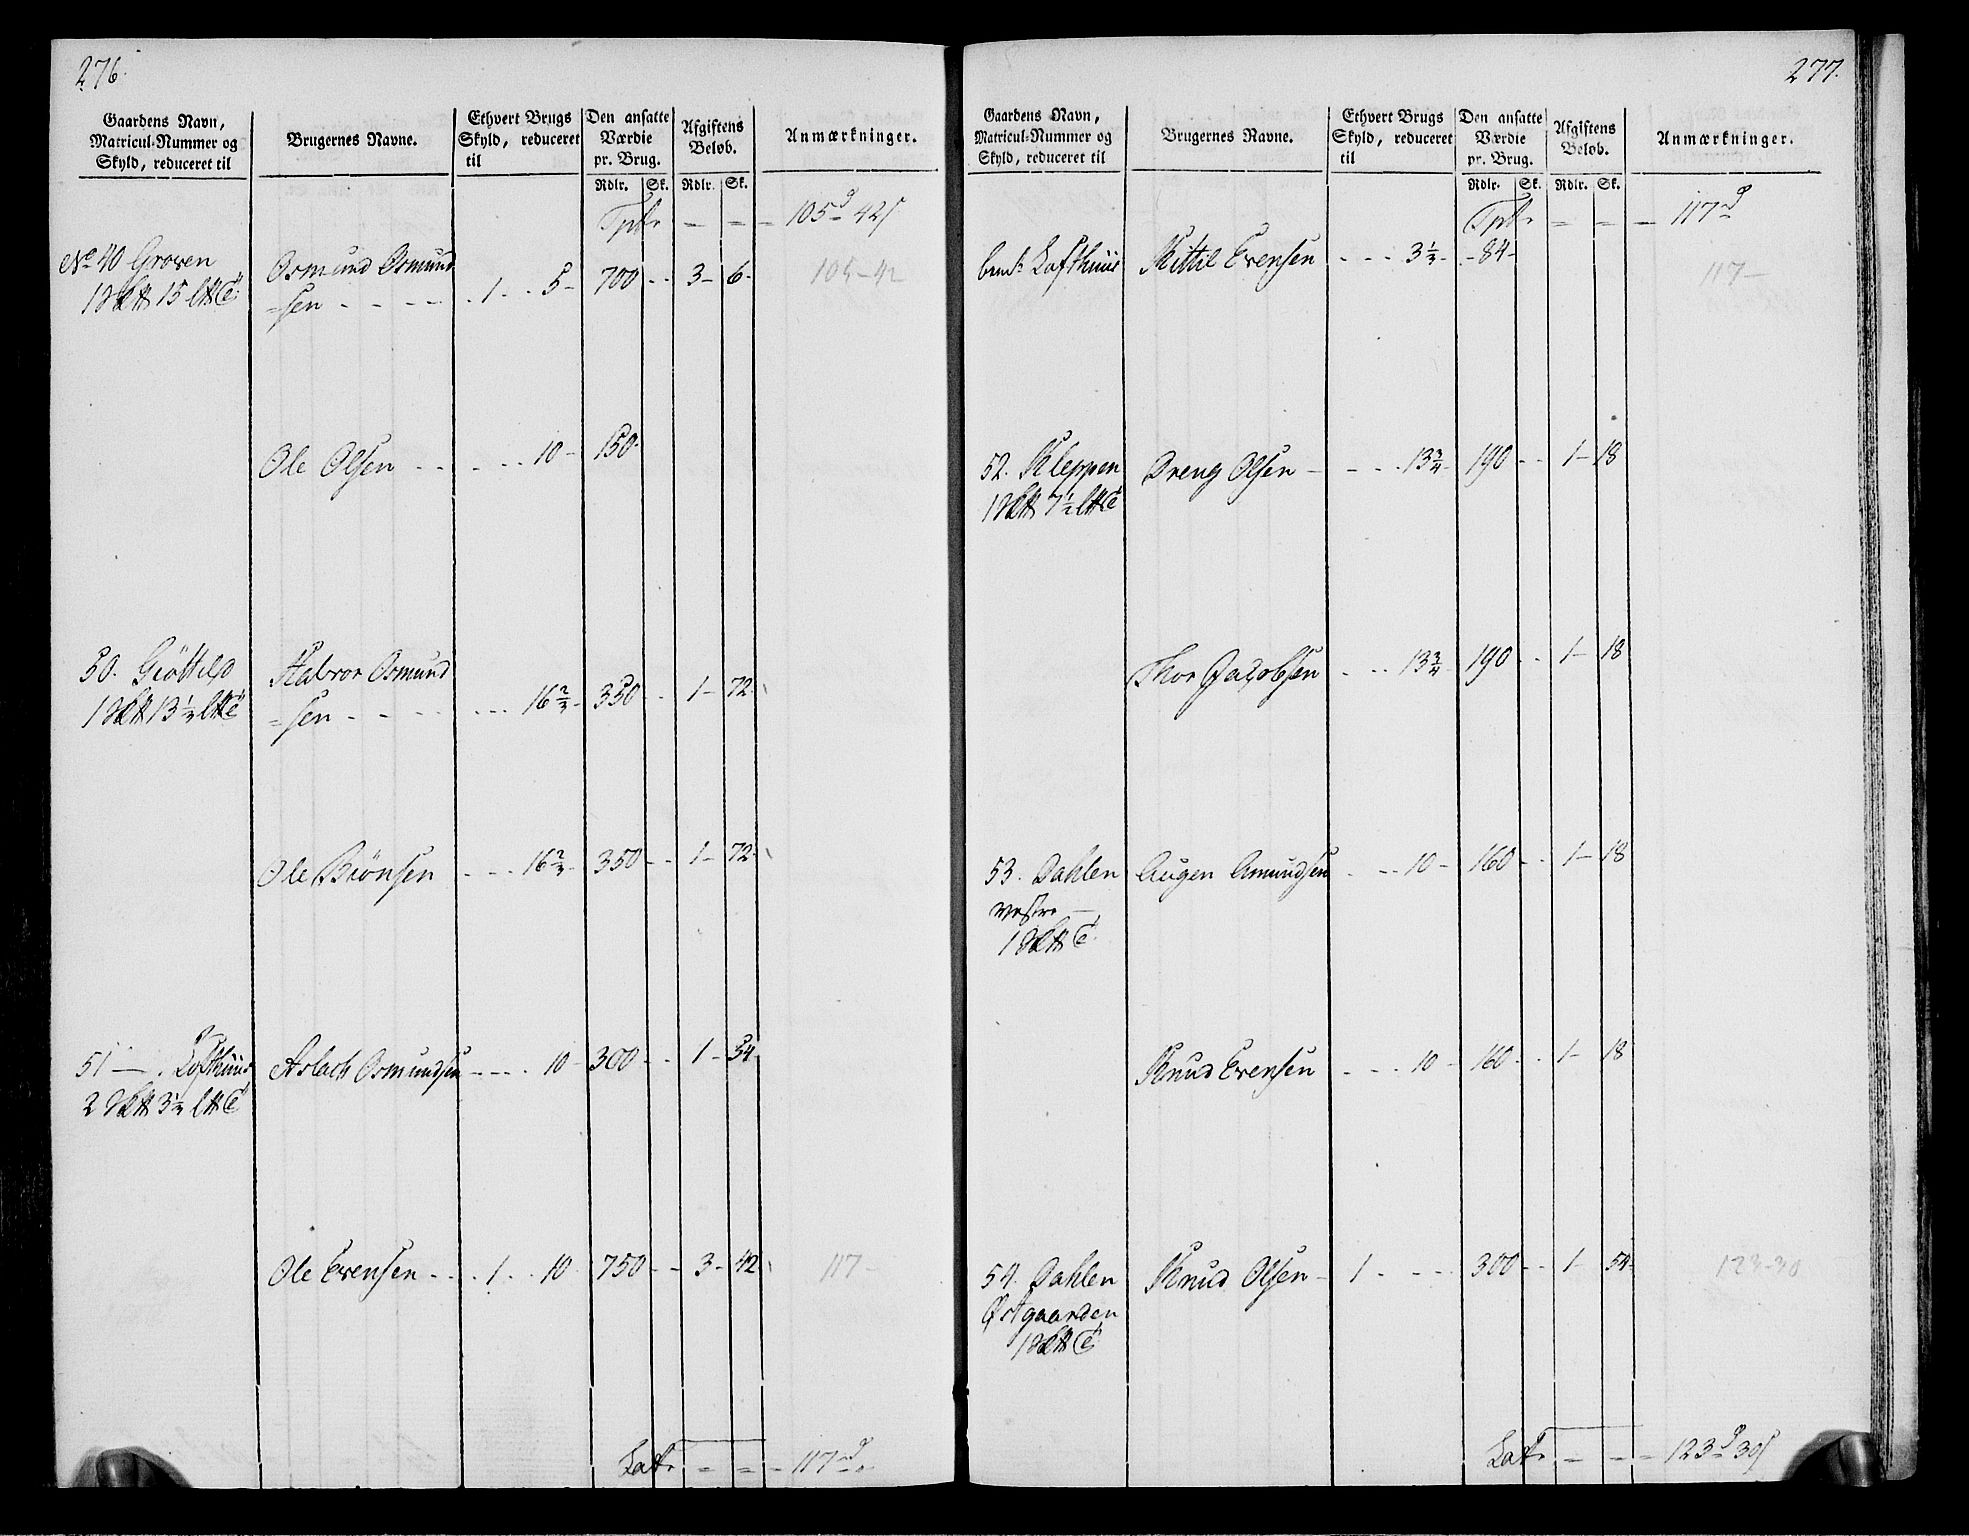 276.
Gaardens Navn, Matricul-Nummer og Skyld, reduceret til
Brugernes Navne.
Ethvert Brugs Skyld, reduceret til
Den ansatte Værdie pr. Brug.
Afgiftens Beløb.
Anmærkninger.
Rdlr. Sk. Rdlr. Sk.
Tpt. = = = 105 42
No 40 Groven Osmund Osmund
=sen 1 5 700 3 6 105-42
Ole Olsen 10 150
50. Halvor Osmund
=sen 16 2/3 350 1 72
Ole Biönsen 16 2/3 350 1 72
51 Lofthuus Aslach Osmundsen 10 300 1 54
Ole Evensen 1 10 750 3 42 117-
Lat. = = = 117
277.
Gaardens Navn, Matricul-Nummer og Skyld, reduceret til
Brugernes Navne.
Ethvert Brugs Skyld, reduceret til
Den ansatte Værdie pr. Brug.
Afgiftens Beløb.
Anmærkninger.
Rdlr. Sk. Rdlr. Sk.
Tpt. = = = 117
Lofthuus Kittil Evensen 3 1/3 84 117-
52. Kleppen Dreng Olsen 13 3/4 190 1 18
Thor Jacobsen 13 3/4 190 1 18
53. Dahlen Augen Amundsen 10 160 1 18
vestre
Knud Evensen 10 160 1 18
54. Dahlen Knud Olsen 1 300 1 54 123-30
Østgaarden
Lat. = = = 123 30